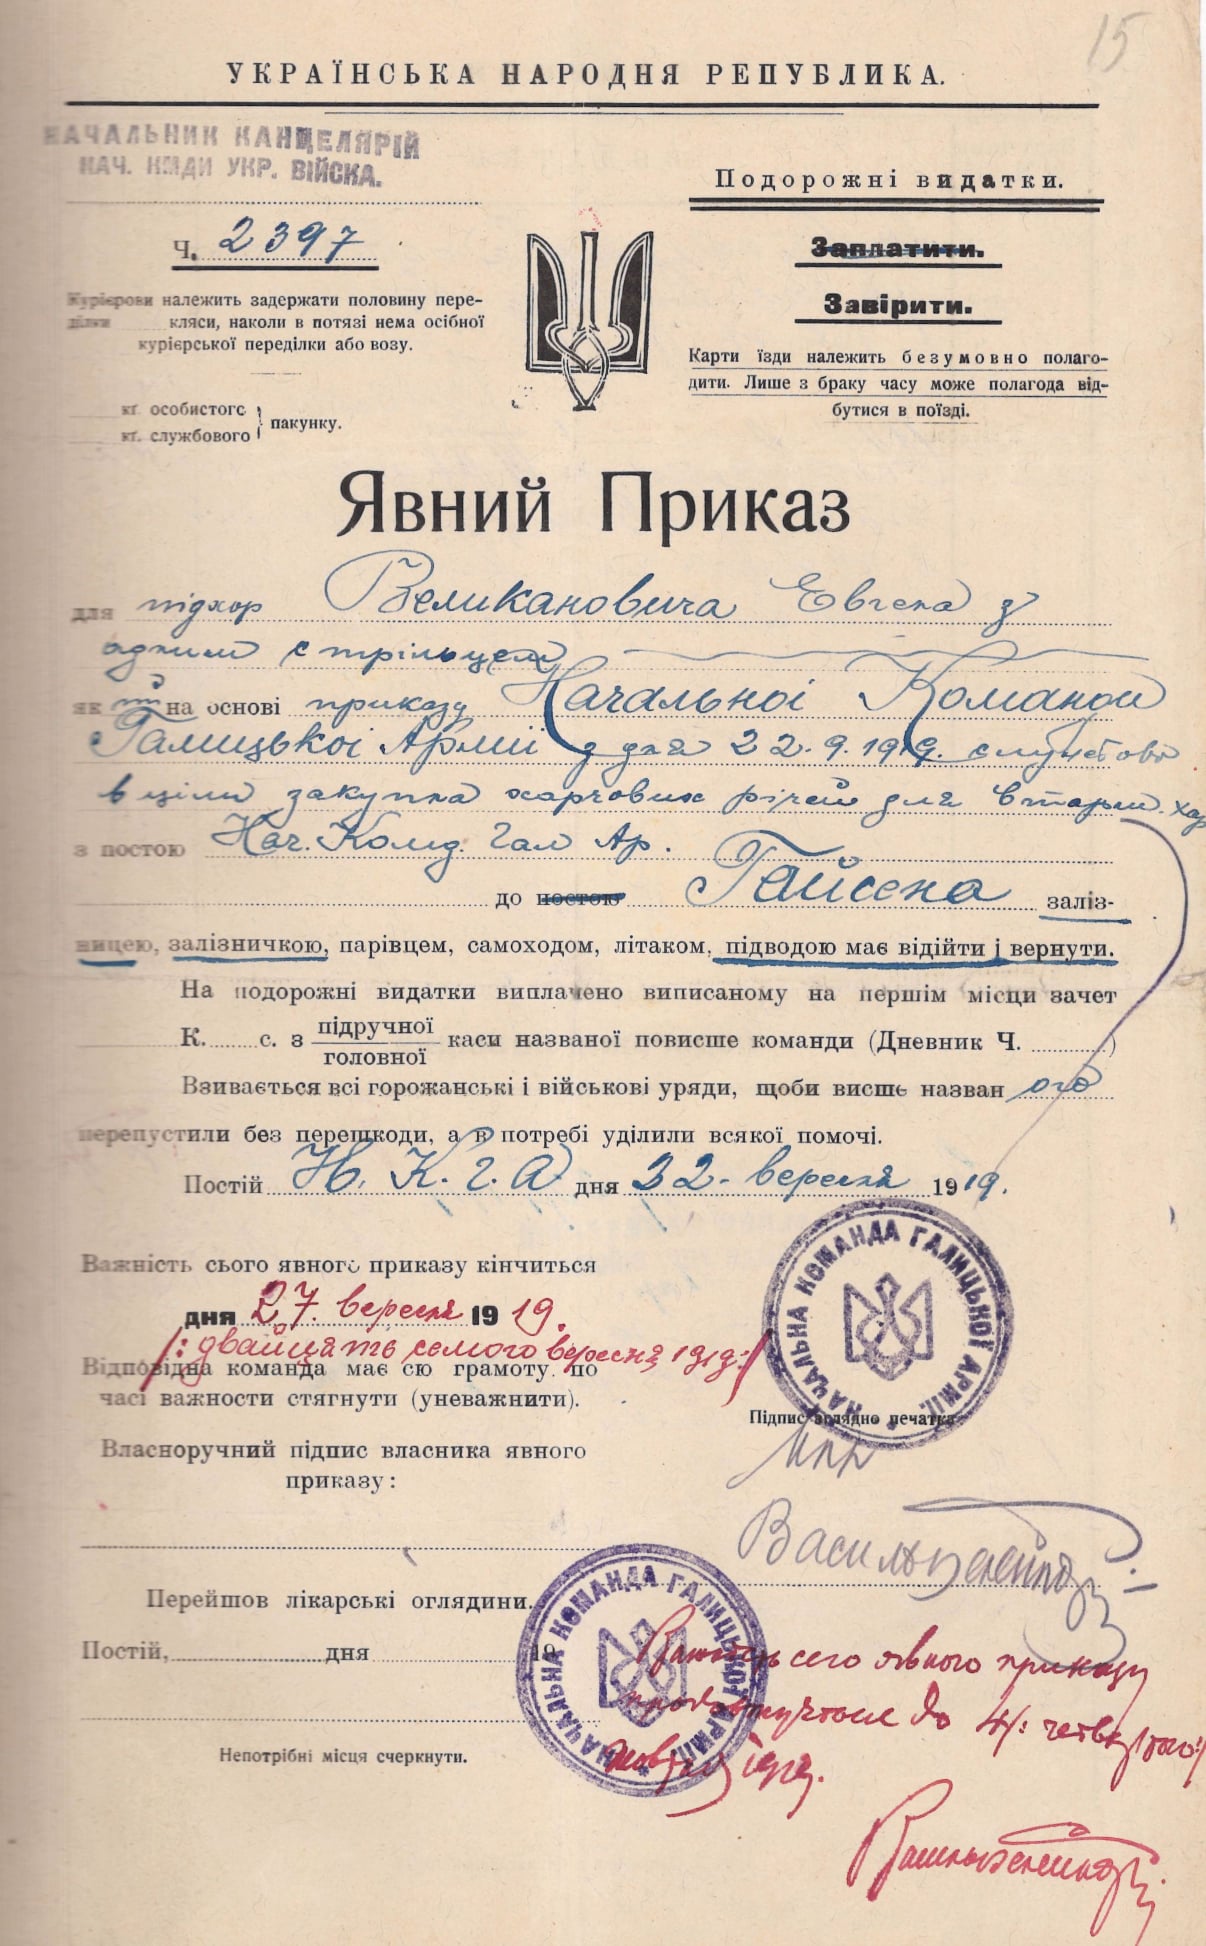 15
УКРАЇНСЬКА НАРОДНЯ РЕПУБЛИКА.
НАЧАЛЬНИК КАНЦЕЛЯРІЙ
НАЧ. КМДИ УКР. ВІЙСКА.
Ч. 2397
Курієрови належить задержати половину пере-
ділки кляси, наколи в потязі нема осібної
курієрської переділки або возу.
кґ особистого
кґ. службового } пакунку.
Подорожні видатки.
Заплатити.
Завірити.
Карти їзди належить безумовно полаго-
дити. Лише з браку часу може полагода від-
бутися в поїзді.
Явний Приказ
для підхор Великановича Евгена з
одним стрільцем
як на основі приказу Начальної Команди
Галицької Армії з дня 22.9.1919. службово
в ціли закупна харчових річей для
з постою Нач. Комд. Гал Ар.
до постою Гайсена заліз-
ницею, залізничкою, парівцем, самоходом, літаком, підводою має відійти і вернути.
На подорожні видатки виплачено виписаному на першім місци зачет
К. с. з підручної
головної каси названої повисше команди (Дневник Ч. )
Взивається всі горожанські і військові уряди, щоби висше назван ого
перепустили без перешкоди, а в потребі уділили всякої помочі.
Постій Н. К. Г. А дня 22. вересня 1919.
Важність сього явного приказу кінчиться
дня 27. вересня 1919.
/: двайцять семого вересня 1919:/
Відповідна команда має сю грамоту по
часі важности стягнути (уневажнити).
НАЧАЛЬНА КОМАНДА ГАЛИЦЬКОЇ АРМІЇ.
Підпис зглядно печатка
Власноручний підпис власника явного
приказу:
Перейшов лікарські оглядини.
Постій, дня 19
НАЧАЛЬНА КОМАНДА ГАЛИЦЬКОЇ АРМІЇ.
Важність сего явного приказу
продовжується до 4/: четвертого:/
жовтня 1919.
Непотрібні місця счеркнути.